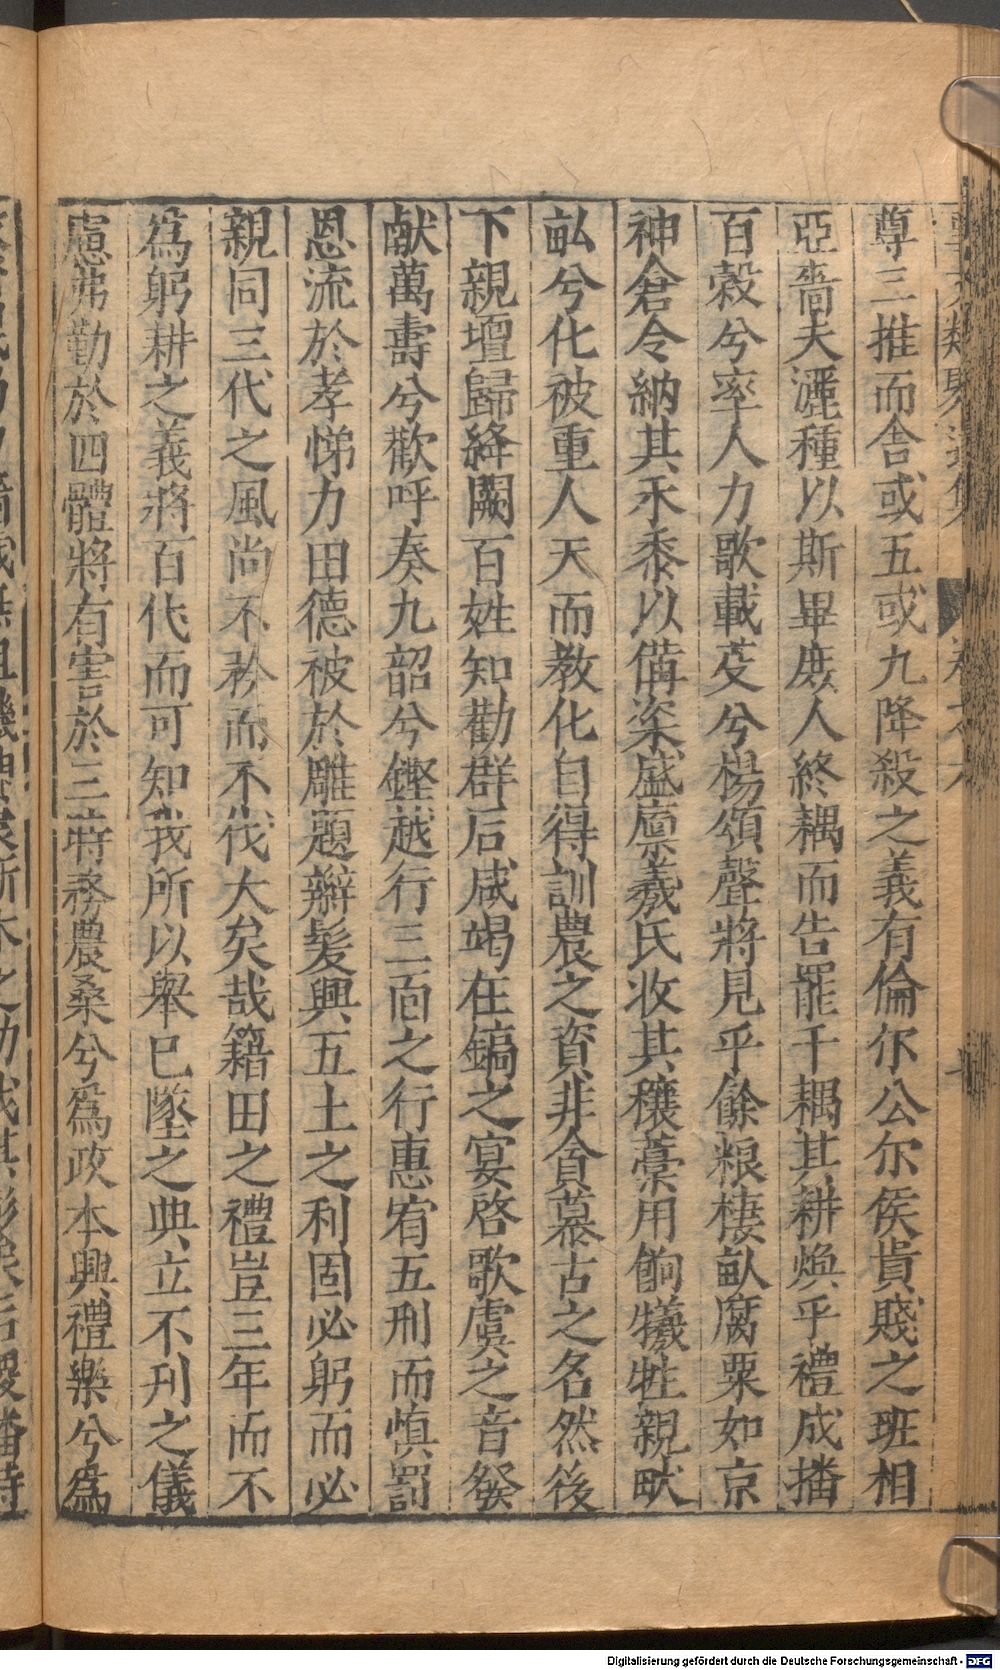 尊三推而舍或五或九降殺之義有倫尔公尔侯貴賤之班相
亞嗇夫灑種以斯畢庶人終耦而告罷千耦其耕煥乎禮成播
百穀兮率人力歌載芟兮楊頌聲將見乎餘粮棲畝腐粟如京
神倉令納其禾黍以備粢盛廩羲氏收其穰藁用飼犧牲親畎
畝兮化被重人天而教化自得訓農之資非貪慕古之名然後
下親壇歸絳闕百姓知勸群后咸竭在鎬之宴啓歌虞之音發
献萬壽兮歡呼奏九韶兮鏗越行三面之行惠宥五刑而慎罰
恩流於孝悌力田德被於雕題辮髮興五土之利固必躬而必
親同三代之風尚不矜而不伐大矣哉籍田之禮豈三年而不
為躬耕之義將百代而可知我所以舉已墜之典立不刊之儀
慮弗勤於四體將有害於三時務農桑兮爲政本興禮樂兮爲
Digitalisierung gefördert durch die Deutsche Forschungsgemeinschaft - DFG